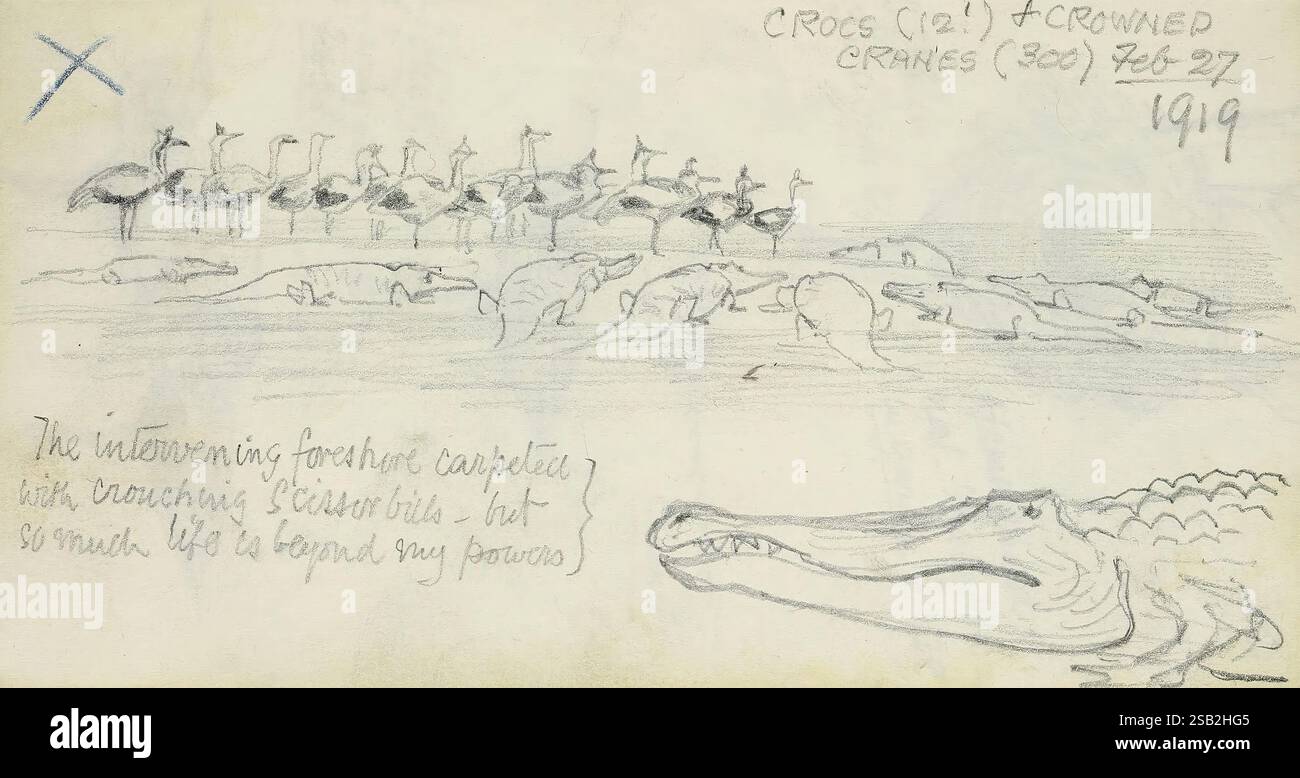 CROCS (12!) + CROWNED
CRANES (300) Feb 27
1919
The intervening foreshore carpeted
with crouching Scissorbills - but
so much life is beyond my powers
alamy
Image ID: 2SB2HG5
www.alamy.com